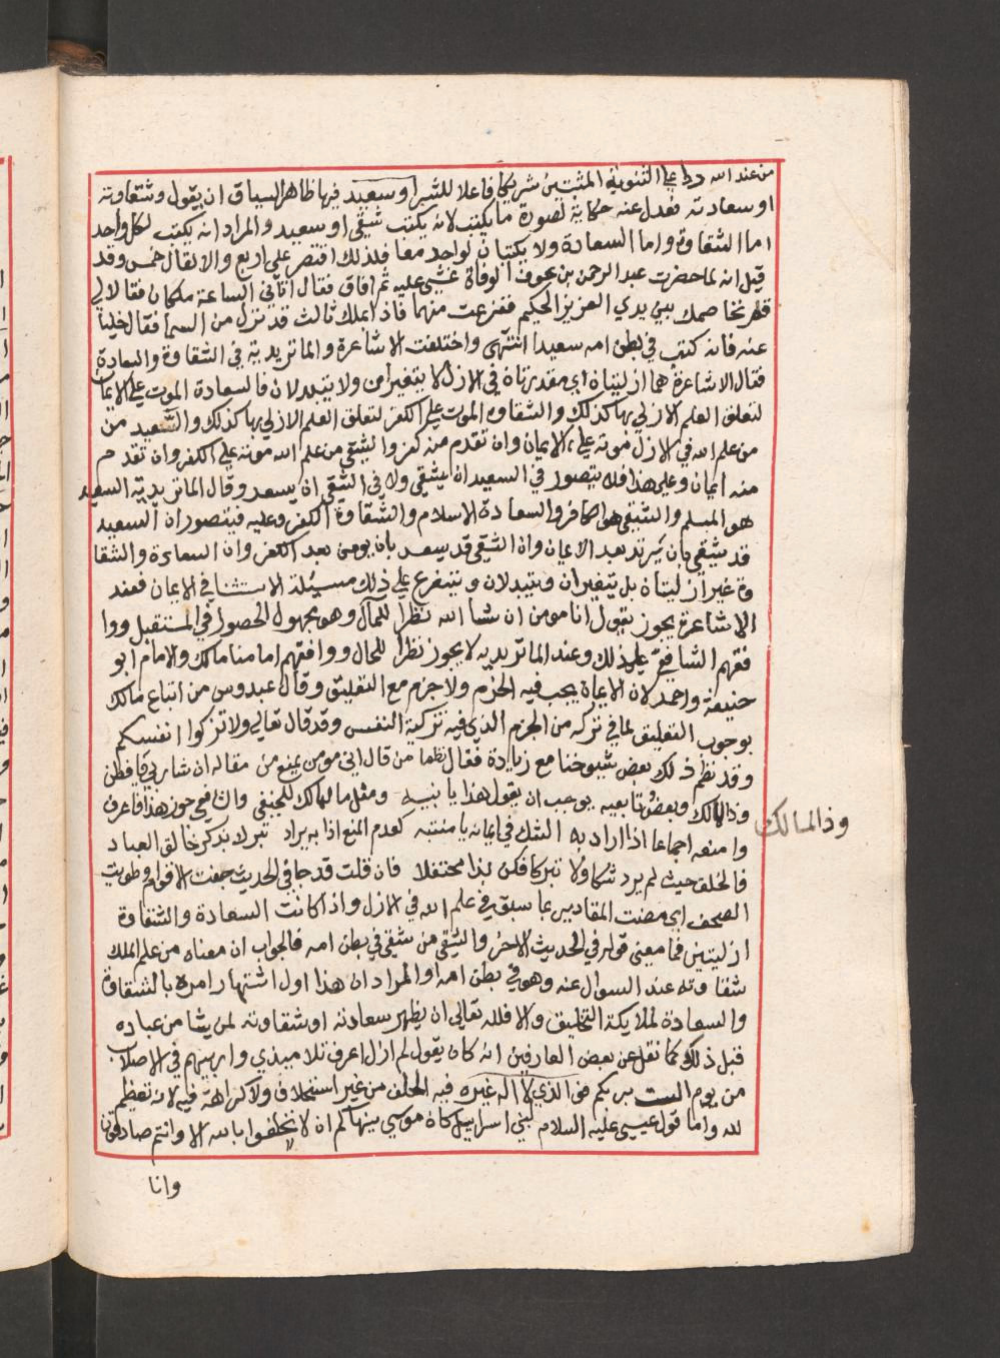 من عند الله ردا على الثنوية المثبتين شريكا فاعلا للشر او سعيد فيها ظاهر السياق ان يقول وشقاوته
او سعادته فعدل عنه حكاية لصورة ما يكتب لانه يكتب شقي او سعيد والمراد انه يكتب لكل واحد
اما الشقاوة واما السعادة ولا يكتبان لواحد معا فلذلك اقتصر على اربع والا لقال خمس وقد
قيل انه لما حضرت عبد الرحمن بن عوف الوفاة غشي عليه ثم افاق فقال اتاني الساعة ملكان فقالا لي
قم نخاصمك بين يدي العزيز الحكيم ففزعت منهما فاذا بملك ثالث قد نزل من السما فقال خليا
عنه فانه كتب في بطن امه سعيدا انتهى واختلفت الاشاعرة والماتريدية في الشقاوة والسعادة
فقال الاشاعرة هما ازليتان اي مقدرتان في الازل لا يتغيران ولا يتبدلان فالسعادة الموت على الايمان
لتعلق العلم الازلي بها كذلك والشقاوه الموت على الكفر لتعلق العلم الازلي بها كذلك والسعيد من
من علم الله في الازل موته على الايمان وان تقدم منه كفر والشقي من علم الله موته على الكفر وان تقدم
منه ايمان وعلى هذا فلا يتصور في السعيد ان يشقى ولا في الشقي ان يسعد وقال الماتريدية السعيد
هو المسلم والشقي هو الكافر والسعادة الاسلام والشقاوة الكفر وعليه فيتصور ان السعيد
قد يشقى بان يرتد بعد الايمان وان الشقي قد يسعد بان يومن بعد الكفر وان السعادة والشقا
وة غير ازليتان بل يتغيران ويتبدلان ويتفرع على ذلك مسيئلة الاستثنا في الايمان فعند
الاشاعرة يجوز يقول انا مومن ان شا الله نظرا للمآل وهو مجهول الحصول في المستقبل ووا
فقهم الشافعي على ذلك وعند الماتريديه لا يجوز نظرا للحال ووافقهم امامنا مالك والامام ابو
حنيفة واحمد لان الايمان يجب فيه الجزم ولا جزم مع التعليق وقال عبدوس من اتباع مالك
بوجوب التعليق لما في تركه من الجزم الذي فيه تزكية النفس وقد قال تعالى ولا تزكوا انفسكم
وقد نظم ذلك بعض شيوخنا مع زيادة فقال نظما من قال اني مومن يمنع من مقاله ان شا ربي يا فطن
وذا لمالك وبعض تابعيه يوجب ان يقول هذا يا نبيه ومثل ما لمالك للحنفي والشافعي جوز هذا فاعرف
وذا لمالك
وامنعه اجماعا اذا اراد به الشك في ايمانه يا منتبه كعدم المنع اذا به يراد تبركا بذكر خالق العباد
فالخلف حيث لم يرد شكا ولا تبركا فكن بذا محتفلا فان قلت قد جا في الحديث جفت الاقلام وطويت
الصحف اي مضت المقادير بما سبق في علم الله في الازل واذا كانت السعادة والشقاوة
ازليتين فما معنى قوله في الحديث الاخر والشقي من شقي في بطن امه فالجواب ان معناه من علم الملك
شقاوته عند السوال عنه وهو في بطن امه او المراد ان هذا اول اشتهار امره بالشقاوة
والسعادة لملايكة التخليق والا فلله تعالى ان يظهر سعادته او شقاوته لمن يشا من عباده
قبل ذلك كما نقل عن بعض العارفين انه كان يقول لم ازل اعرف تلاميذي واربيهم في الاصلاب
من يوم الست بربكم فو الذي لا اله غيره فيه الحلف من غير استحلاف ولا كراهة فيه لانه تعظيم
لله واما قول عيسى عليه السلام لبني اسراييل كان موسى ينهاكم ان لا تحلفوا بالله الا وانتم صادقون
وانا